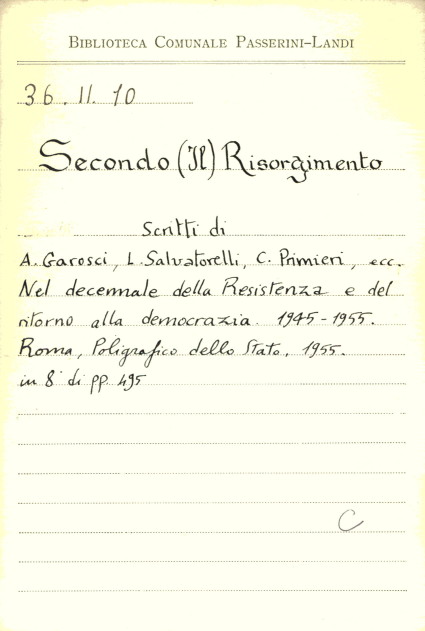 BIBLIOTECA COMUNALE PASSERINI-LANDI
36.II.10
Secondo (Il) Risorgimento
Scritti di
A. Garosci, L. Salvatorelli, C. Primieri, ecc.
Nel decennale della Resistenza e del
ritorno alla democrazia. 1945-1955.
Roma, Poligrafico dello Stato, 1955.
in 8° di pp. 495
C